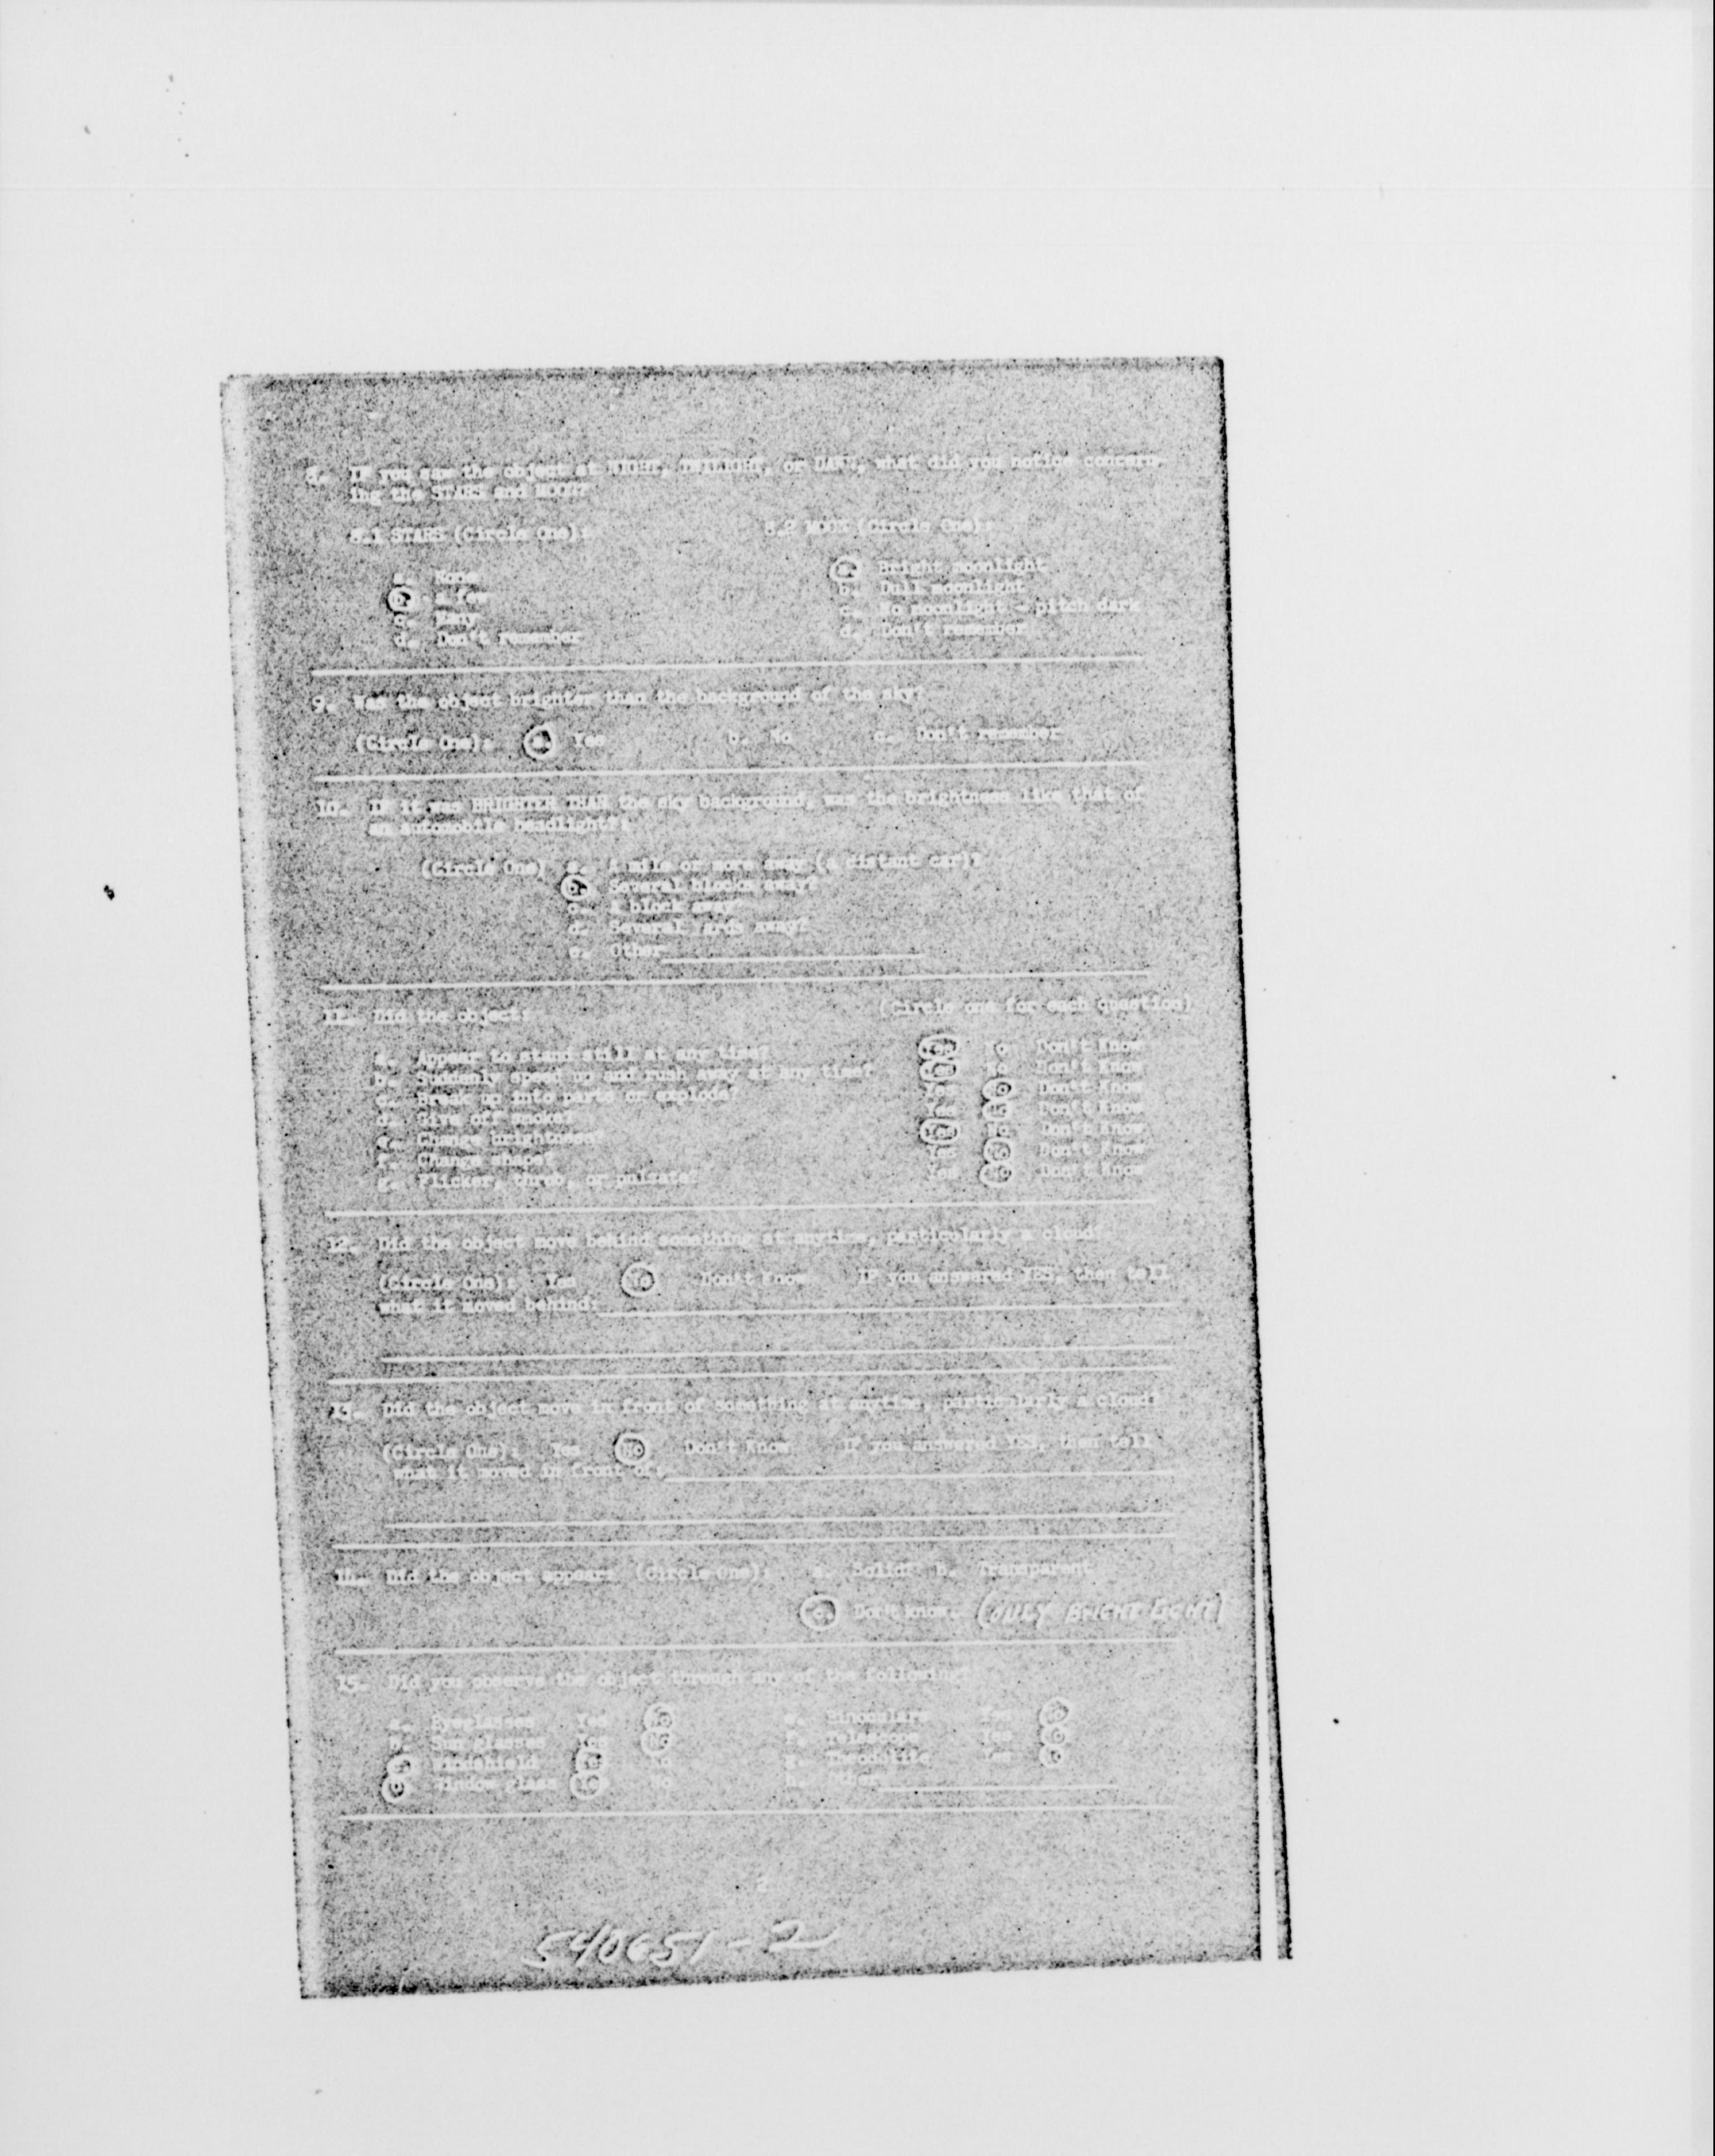 8. IF you saw the object at NIGHT, TWILIGHT, or DAWN, what did you notice concern-
ing the STARS and MOON?
8.1 STARS (Circle One): 8.2 MOON (Circle One):
a. None a. Bright moonlight
b. A few b. Dull moonlight
c. Many c. No moonlight - pitch dark
d. Don't remember d. Don't remember
9. Was the object brighter than the background of the sky?
(Circle One): a. Yes b. No c. Don't remember
10. IF it was BRIGHTER THAN the sky background, was the brightness like that of
an automobile headlight?:
(Circle One) a. A mile or more away (a distant car)?
b. Several blocks away?
c. A block away?
d. Several yards away?
e. Other
11. Did the object: (Circle one for each question)
a. Appear to stand still at any time? Yes No Don't Know
b. Suddenly speed up and rush away at any time? Yes No Don't Know
c. Break up into parts or explode? Yes No Don't Know
d. Give off smoke? Yes No Don't Know
e. Change brightness? Yes No Don't Know
f. Change shape? Yes No Don't Know
g. Flicker, throb, or pulsate? Yes No Don't Know
12. Did the object move behind something at anytime, particularly a cloud?
(Circle One): Yes No Don't Know IF you answered YES, then tell
what it moved behind:
13. Did the object move in front of something at anytime, particularly a cloud?
(Circle One): Yes No Don't Know IF you answered YES, then tell
what it moved in front of:
14. Did the object appear: (Circle One): a. Solid? b. Transparent
c. Don't know. (ONLY BRIGHT LIGHT)
15. Did you observe the object through any of the following?
a. Eyeglasses Yes No e. Binoculars Yes No
b. Sun glasses Yes No f. Telescope Yes No
c. Windshield Yes No g. Theodolite Yes No
d. Window glass Yes No h. Other
2
540651-2